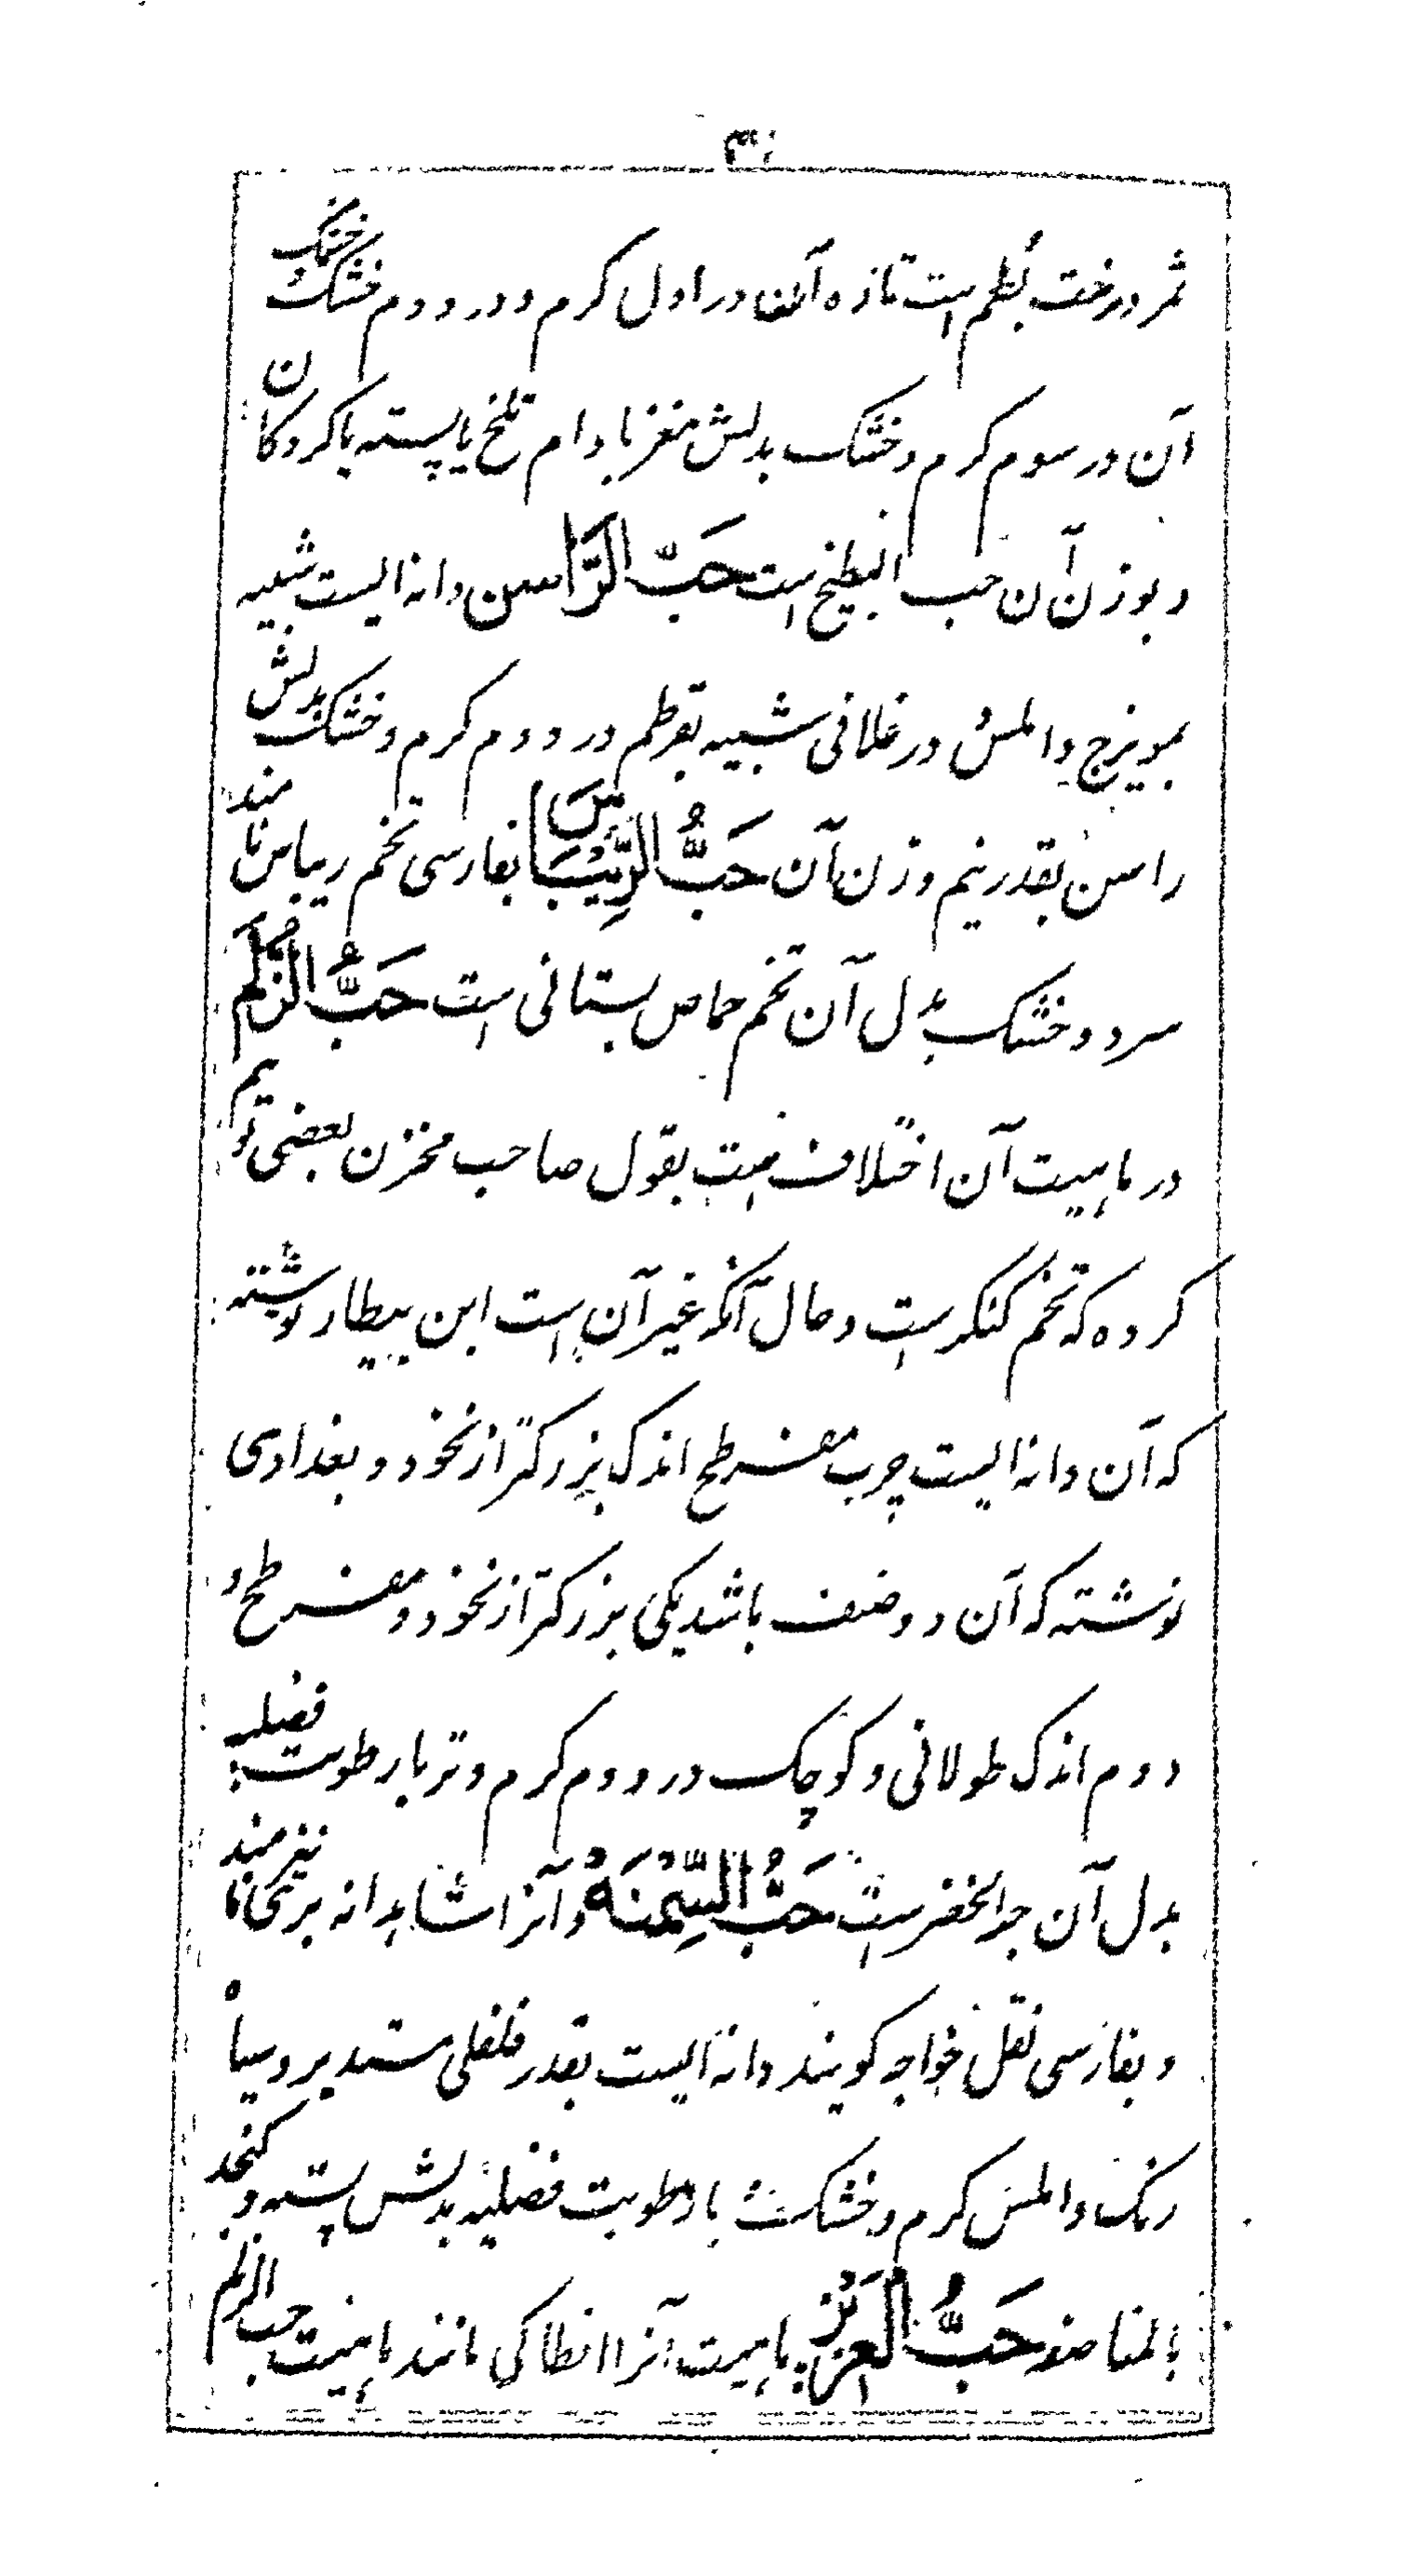 ثمر درخت بُطم است تازه آن در اول کرم و در دوم خشک خشک
آن در سوم کرم و خشک بدلش مغز بادام تلخ یا پسته یا کردکان
و بوزن آن حب البطیخ است حَبّ الرَّاسن دانه ایست شبیه
بمویزج و املس در غلافی شبیه بقرطم در دوم کرم و خشک بدلش
راسن بقدر نیم وزن آن حَبُّ الرِّیْبَاس بفارسی تخم ریباس نامند
سرد و خشک بدل آن تخم حماض بستانی است حَبُّ الزُّلَم
در ماهیت آن اختلاف است بقول صاحب مخزن بعضی توهم
کرده که تخم کنکرست و حال آنکه غیر آن است ابن بیطار نوشته
که آن دانه ایست چرب مفرطح اندک بزرکتر از نخود و بغدادی
نوشته که آن دو صنف باشد یکی بزرکتر از نخود و مفرطح و
دوم اندک طولانی و کوچک در دوم کرم و تر با رطوبت فضلیه
بدل آن حبة الخضراست حَبُّ السِّمْنَةُ و آنرا شاهدانه بری نیز نامند
و بفارسی نقل خواجه کویند دانه ایست بقدر فلفلی مستدیر و سیاه
رنک و املس کرم و خشکست با رطوبت فضلیه بدلش پسته و کنجد
بالمناصفه حَبُّ العَزِیْز ماهیت آنرا انطاکی مانند ماهیت حب الزلم